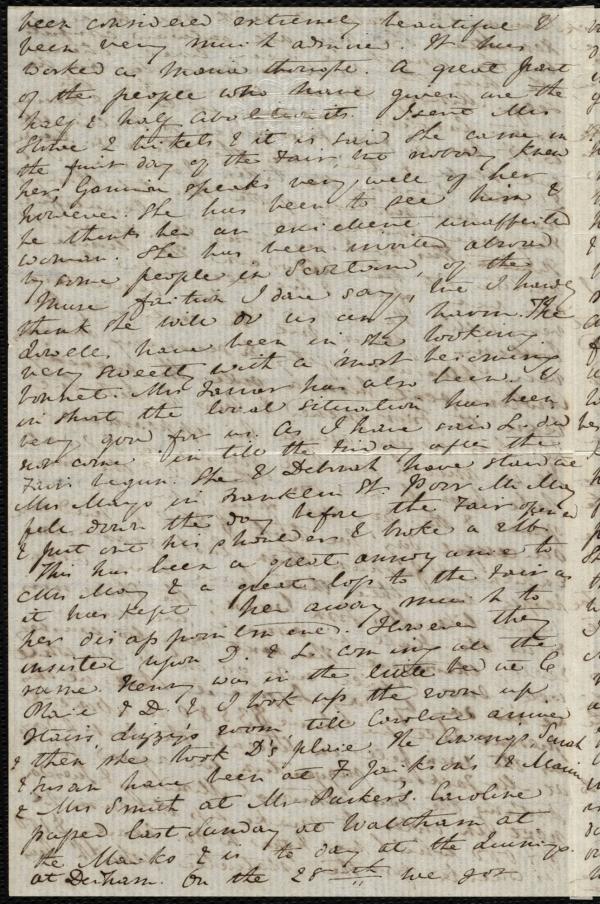 been considered extremely beautiful &
been very much admired. It has
worked as Maria thought. A great part
of the people who have given are the
half & half abolitionists. I sent Mrs
Stowe 2 tickets & it is said she came in
the first day of the Fair but nobody knew
her, Garrison speaks very well of her
however. She has been to see him &
he thinks her an excellent unaffected
woman. She has been invited abroad
by some people in Scotland, of the
Muse faction I dare say, but I hardly
think she will do us any harm. The
Lowells have been in she looking
very sweetly with a most becoming
bonnet. Mrs Farrar has also been. &
in short the local situation has been
very good for us. As I have said L. did
not come in till the Friday after the
Fair begun. She & Deborah have staid at
Mrs Mays in Franklin St. Poor Mr May
fell down the day before the Fair opened
& put out his shoulder & broke a rib.
This has been a great annoyance to
Mrs May & a great loss to the Fair as
it has kept her away much to
her disappointment. However they
insisted upon D. & L. coming all the
same. Henry was in the little bed at C
Place & D. & I took up the room up
stairs, Lizzy's room till Caroline arrived
& then she took D's place. The Cowings, Sarah
& Susan have been at F Jackson's & Maria
& Mrs Smith at Mr Parker's. Caroline
passed last Sunday at Waltham at
the Macks & is to day at the
at Dedham. On the 28th we got